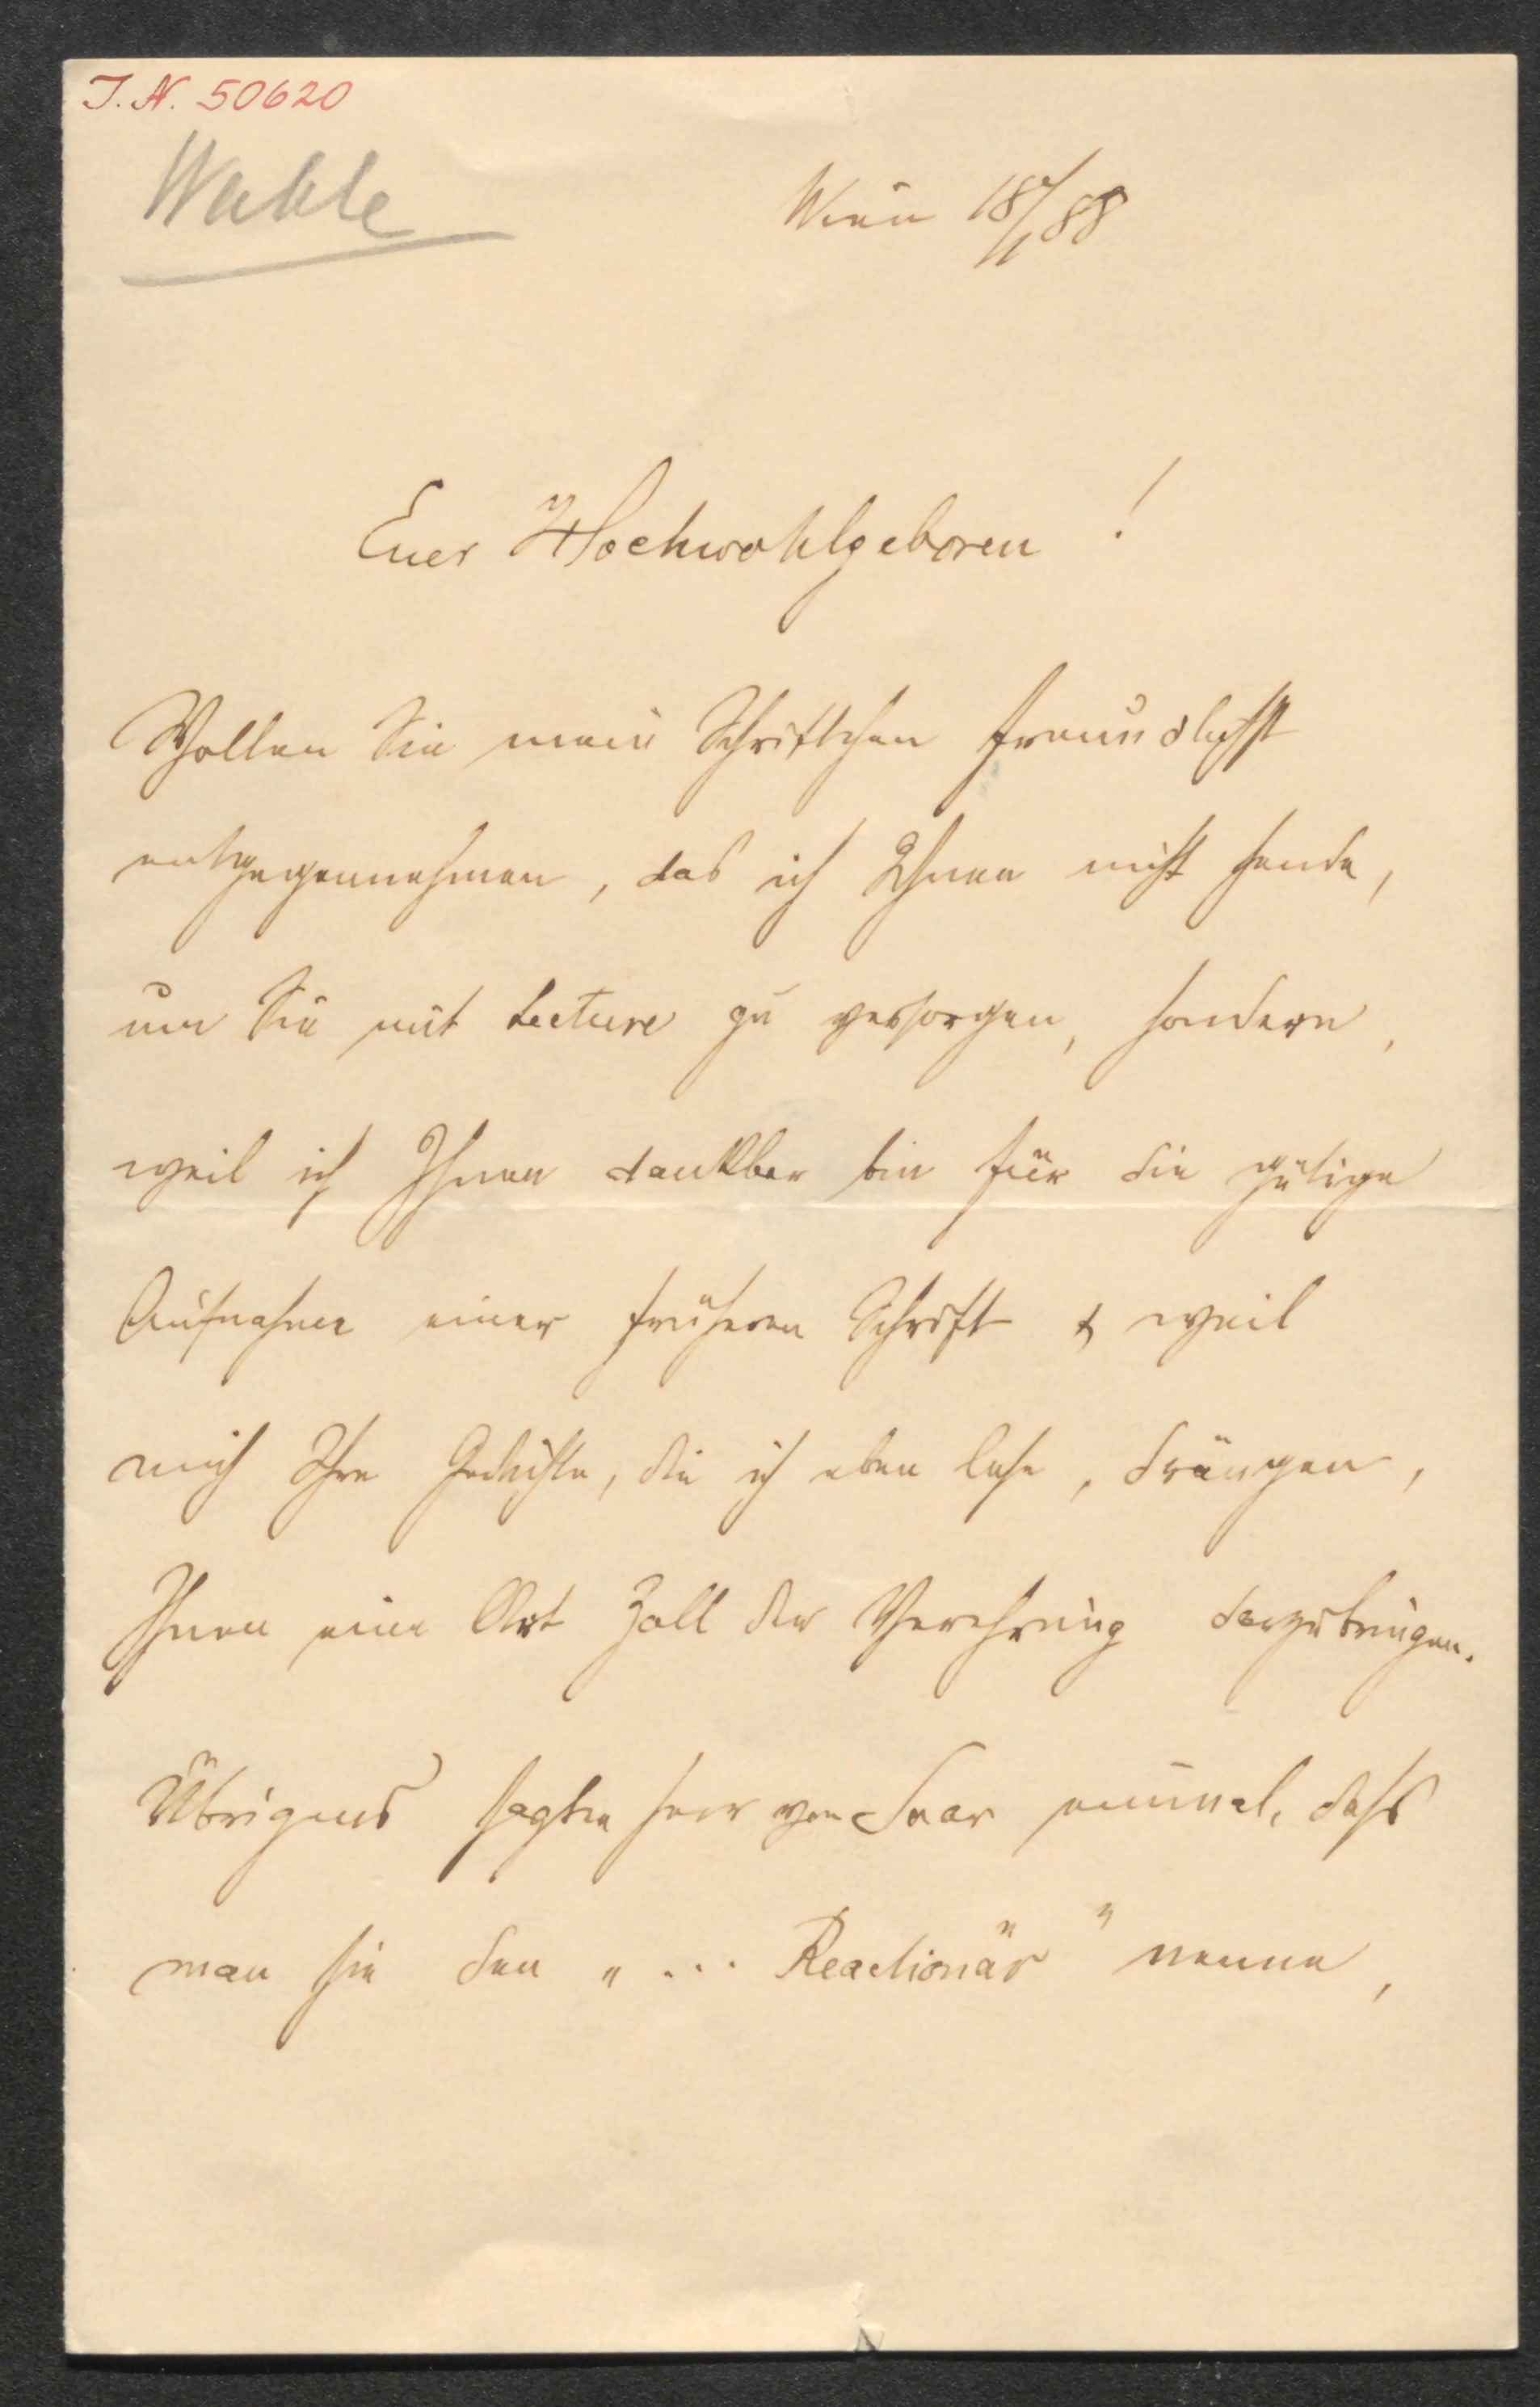 I. N. 50620
Wahle
Wien 18/1 88
Euer Hochwohlgeboren!
Wollen Sie mein Schriftchen freundlichst
entgegennehmen, das ich Ihnen nicht sende,
um Sie mit Lecture zu versorgen, sondern,
weil ich Ihnen dankbar bin für die gütige
Aufnahme einer früheren Schrift & weil
mich Ihre Gedichte, die ich eben lese, drängen,
Ihnen eine Art Zoll der Verehrung darzubringen.
Übrigens sagte Herr von Saar einmal, dass
man sie den „... Reactionär" nenne,